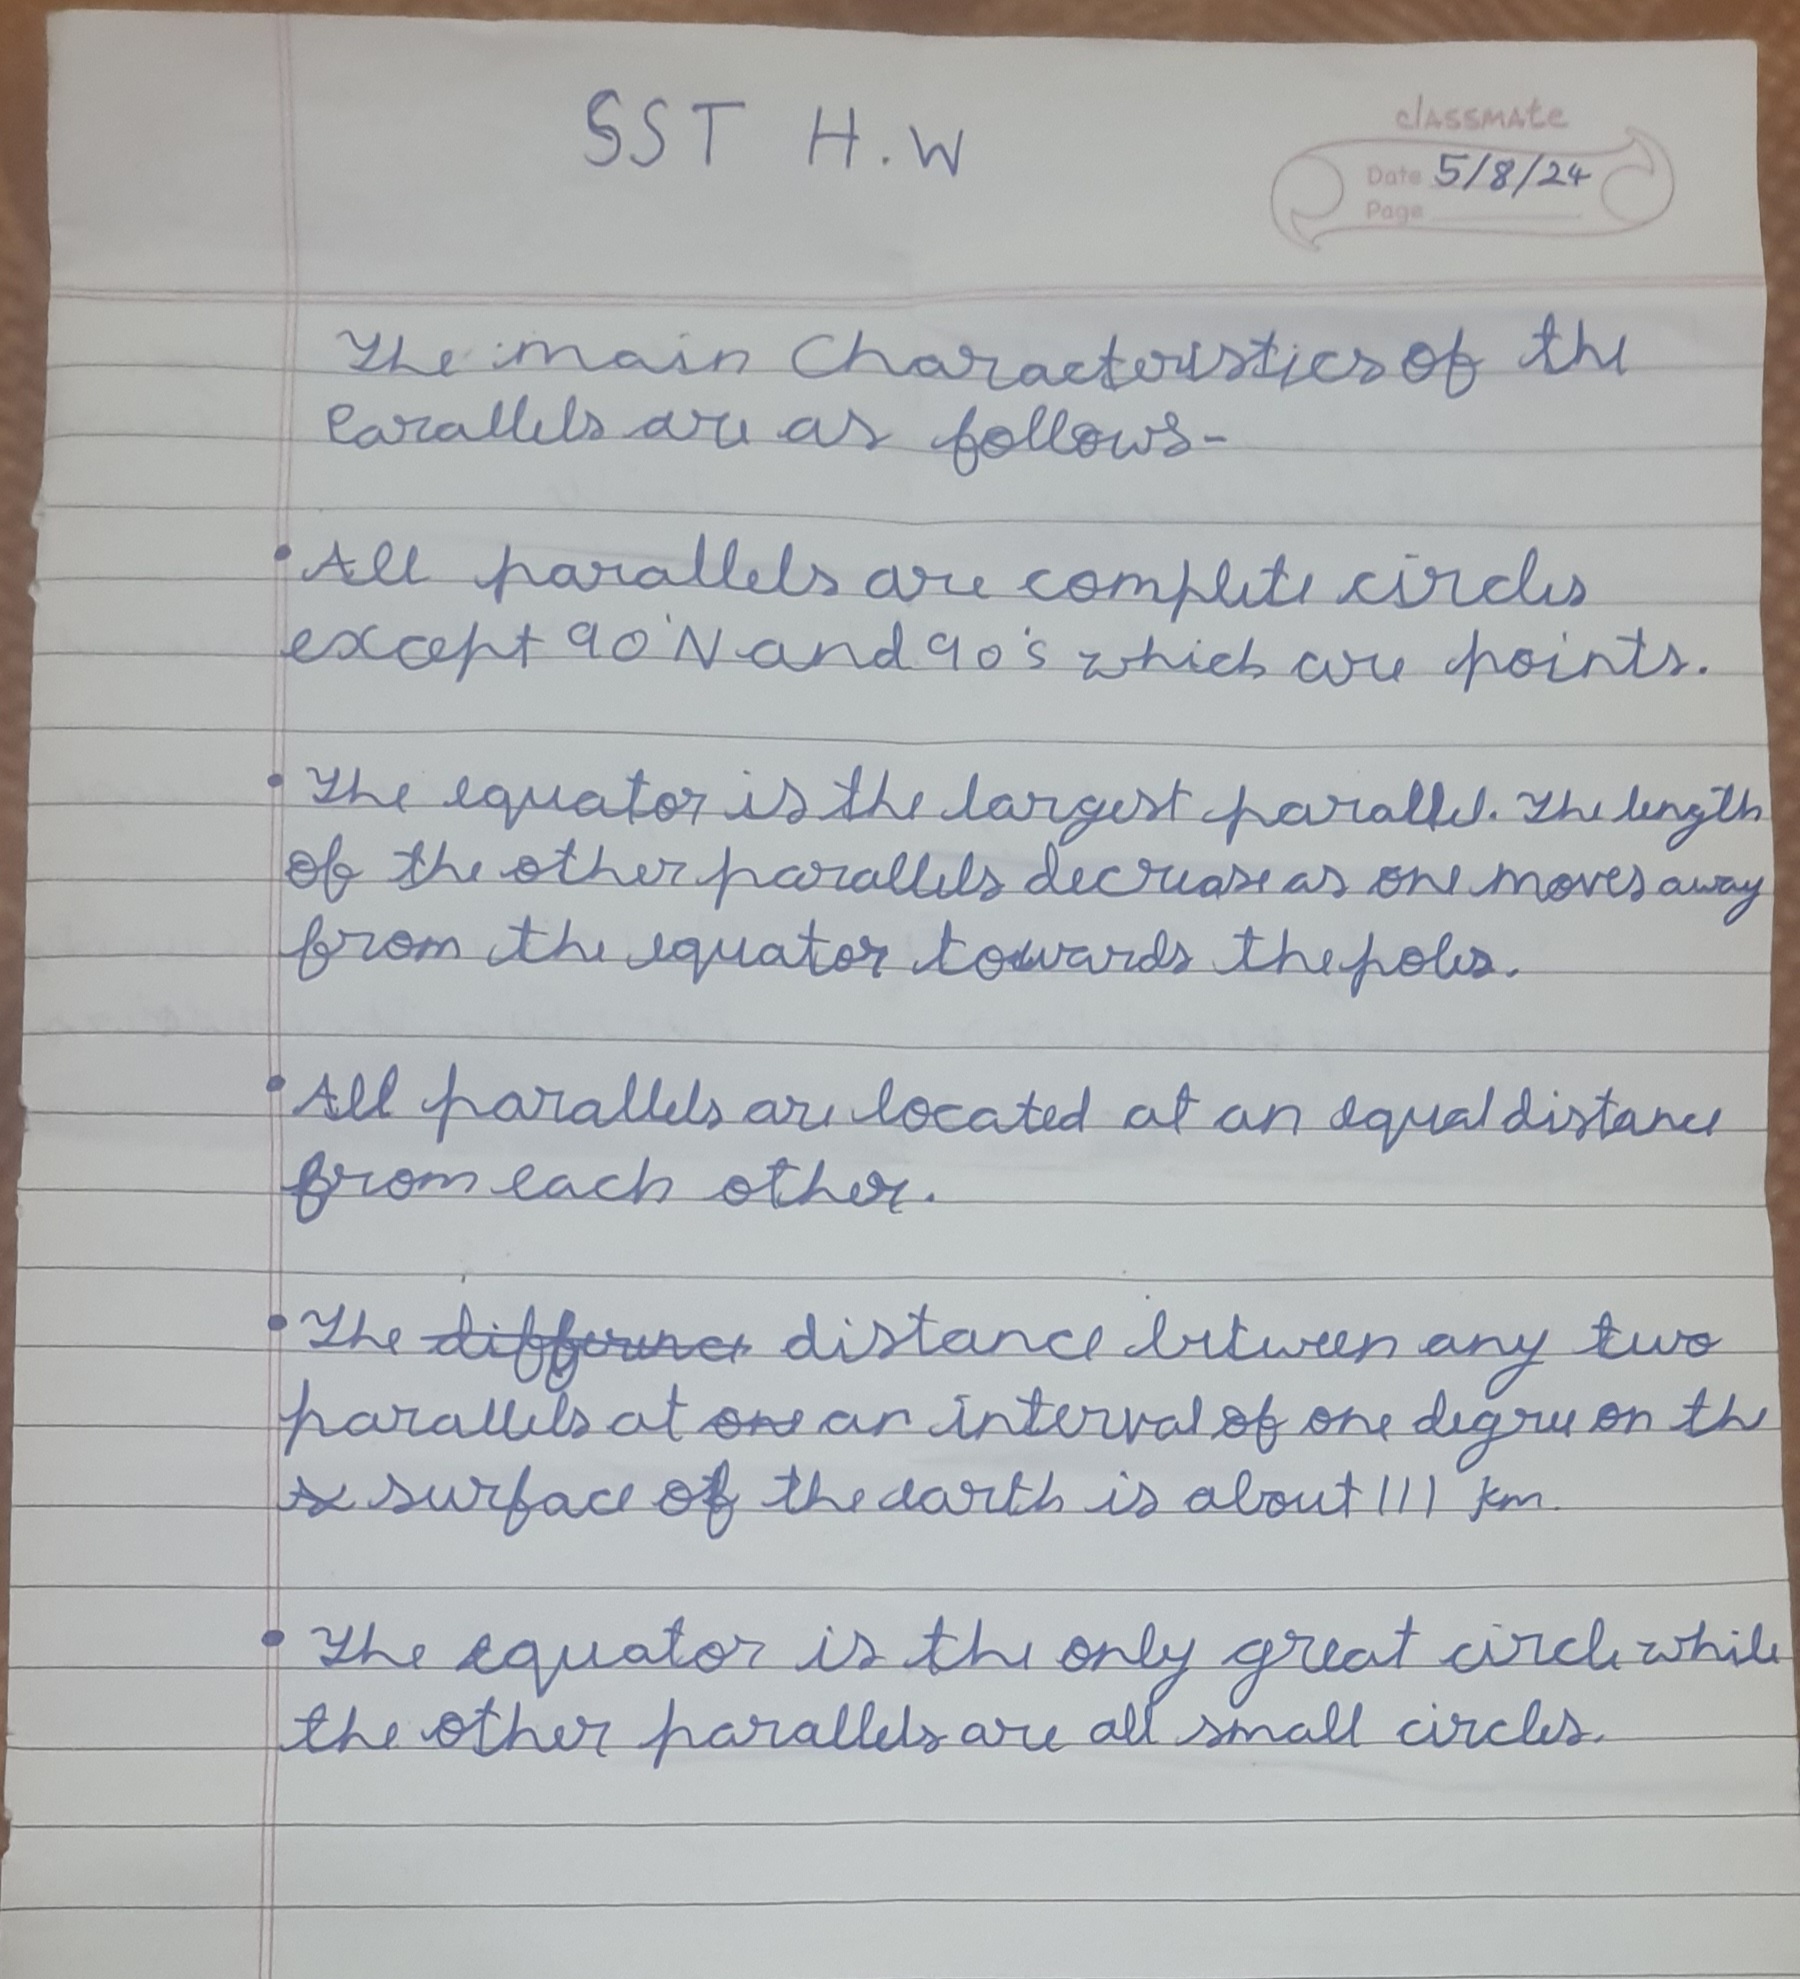 SST H.W
classmate
Date 5/8/24
Page
The main Characteristics of the
Parallels are as follows-
• All parallels are complete circles
except 90°N and 90°S which are points.
• The equator is the largest parallel. The length
of the other parallels decrease as one moves away
from the equator towards the poles.
• All parallels are located at an equal distance
from each other.
• The difference distance between any two
parallels at one an interval of one degree on the
surface of the earth is about 111 km.
• The equator is the only great circle while
the other parallels are all small circles.